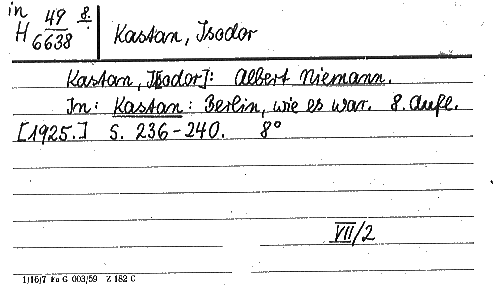 in
H 49 8.
6638
Kastan, Isodor
Kastan, I[sodor]: Albert Niemann.
In: Kastan: Berlin, wie es war. 8. Aufl.
[1925.] S. 236-240. 8°
VII/2
1/16/7 Fu G 003/59 Z 182 C